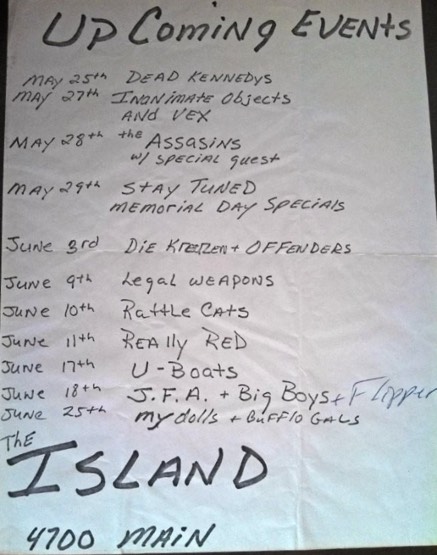 UPComing EVENtS
MAY 25th DEAD KENNEDYS
MAY 27th INANiMATE Objects
AND VEX
MAY 28th the ASSASiNS
w/ SPECiAL guest
MAY 29th StAY TUNED
MEMORiAL DAY SPECiALS
JUNE 3rd DiE KREUZEN + OFFENDERS
JUNE 9th LEgAl WEAPONS
JUNE 10th RattLE CAtS
JUNE 11th REAlly RED
JUNE 17th U-Boats
JUNE 18th J.F.A. + Big Boys + Flipper
JUNE 25th my dolls + BUFFlO GALS
ThE
ISLAND
4700 MAiN